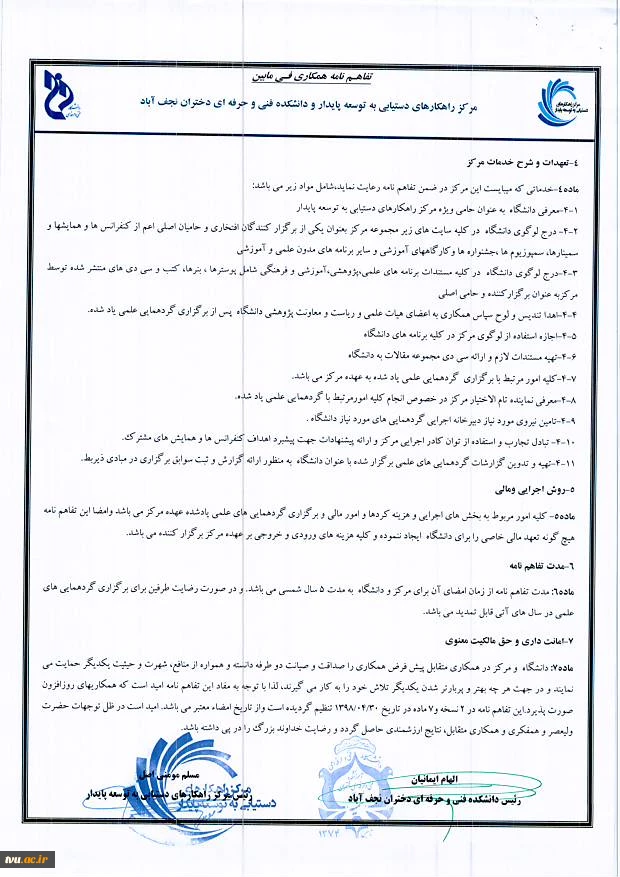 تفاهم نامه همکاری فی مابین
مرکز راهکارهای دستیابی به توسعه پایدار و دانشکده فنی و حرفه ای دختران نجف آباد
مرکز راهکارهای
دستیابی به توسعه پایدار
۴-تعهدات و شرح خدمات مرکز
ماده۴-خدماتی که میبایست این مرکز در ضمن تفاهم نامه رعایت نماید،شامل مواد زیر می باشد:
۴-۱-معرفی دانشگاه به عنوان حامی ویژه مرکز راهکارهای دستیابی به توسعه پایدار
۴-۲- درج لوگوی دانشگاه در کلیه سایت های زیر مجموعه مرکز بعنوان یکی از برگزار کنندگان افتخاری و حامیان اصلی اعم از کنفرانس ها و همایشها و
سمینارها، سمپوزیوم ها ،جشنواره ها وکارگاههای آموزشی و سایر برنامه های مدون علمی و آموزشی
۴-۳-درج لوگوی دانشگاه در کلیه مستندات برنامه های علمی،پژوهشی،آموزشی و فرهنگی شامل پوسترها ، بنرها، کتب و سی دی های منتشر شده توسط
مرکزبه عنوان برگزارکننده و حامی اصلی
۴-۴-اهدا تندیس و لوح سپاس همکاری به اعضای هیات علمی و ریاست و معاونت پژوهشی دانشگاه پس از برگزاری گردهمایی علمی یاد شده.
۴-۵-اجازه استفاده از لوگوی مرکز در کلیه برنامه های دانشگاه
۴-۶-تهیه مستندات لازم و ارائه سی دی مجموعه مقالات به دانشگاه
۴-۷-کلیه امور مرتبط با برگزاری گردهمایی علمی یاد شده به عهده مرکز می باشد.
۴-۸-معرفی نماینده تام الاختیار مرکز در خصوص انجام کلیه امورمرتبط با گردهمایی علمی یاد شده.
۴-۹-تامین نیروی مورد نیاز دبیرخانه اجرایی گردهمایی های مورد نیاز دانشگاه .
۴-۱۰- تبادل تجارب و استفاده از توان کادر اجرایی مرکز و ارائه پیشنهادات جهت پیشبرد اهداف کنفرانس ها و همایش های مشترک.
۴-۱۱-تهیه و تدوین گزارشات گردهمایی های علمی برگزار شده با عنوان دانشگاه به منظور ارائه گزارش و ثبت سوابق برگزاری در مبادی ذیربط.
۵-روش اجرایی ومالی
ماده۵- کلیه امور مربوط به بخش های اجرایی و هزینه کردها و امور مالی و برگزاری گردهمایی های علمی یادشده عهده مرکز می باشد وامضا این تفاهم نامه
هیچ گونه تعهد مالی خاصی را برای دانشگاه ایجاد ننموده و کلیه هزینه های ورودی و خروجی بر عهده مرکز برگزار کننده می باشد.
۶-مدت تفاهم نامه
ماده۶: مدت تفاهم نامه از زمان امضای آن برای مرکز و دانشگاه به مدت ۵ سال شمسی می باشد. و در صورت رضایت طرفین برای برگزاری گردهمایی های
علمی در سال های آتی قابل تمدید می باشد.
۷-امانت داری و حق مالکیت معنوی
ماده۷: دانشگاه و مرکز در همکاری متقابل پیش فرض همکاری را صداقت و صیانت دو طرفه دانسته و همواره از منافع، شهرت و حیثیت یکدیگر حمایت می
نمایند و در جهت هر چه بهتر و پربارتر شدن یکدیگر تلاش خود را به کار می گیرند، لذا با توجه به مفاد این تفاهم نامه امید است که همکاریهای روزافزون
صورت پذیرد.این تفاهم نامه در ۲ نسخه و۷ ماده در تاریخ ۱۳۹۸/۰۴/۳۰ تنظیم گردیده است واز تاریخ امضاء معتبر می باشد. امید است در ظل توجهات حضرت
ولیعصر و همفکری و همکاری متقابل، نتایج ارزشمندی حاصل گردد و رضایت خداوند بزرگ را در پی داشته باشد.
الهام ایمانیان
رئیس دانشکده فنی و حرفه ای دختران نجف آباد
مسلم مومنی اصل
رئیس مرکز راهکارهای دستیابی به توسعه پایدار
مرکز راهکارهای
دستیابی به توسعه پایدار
۱۳۷۴
tvu.ac.ir